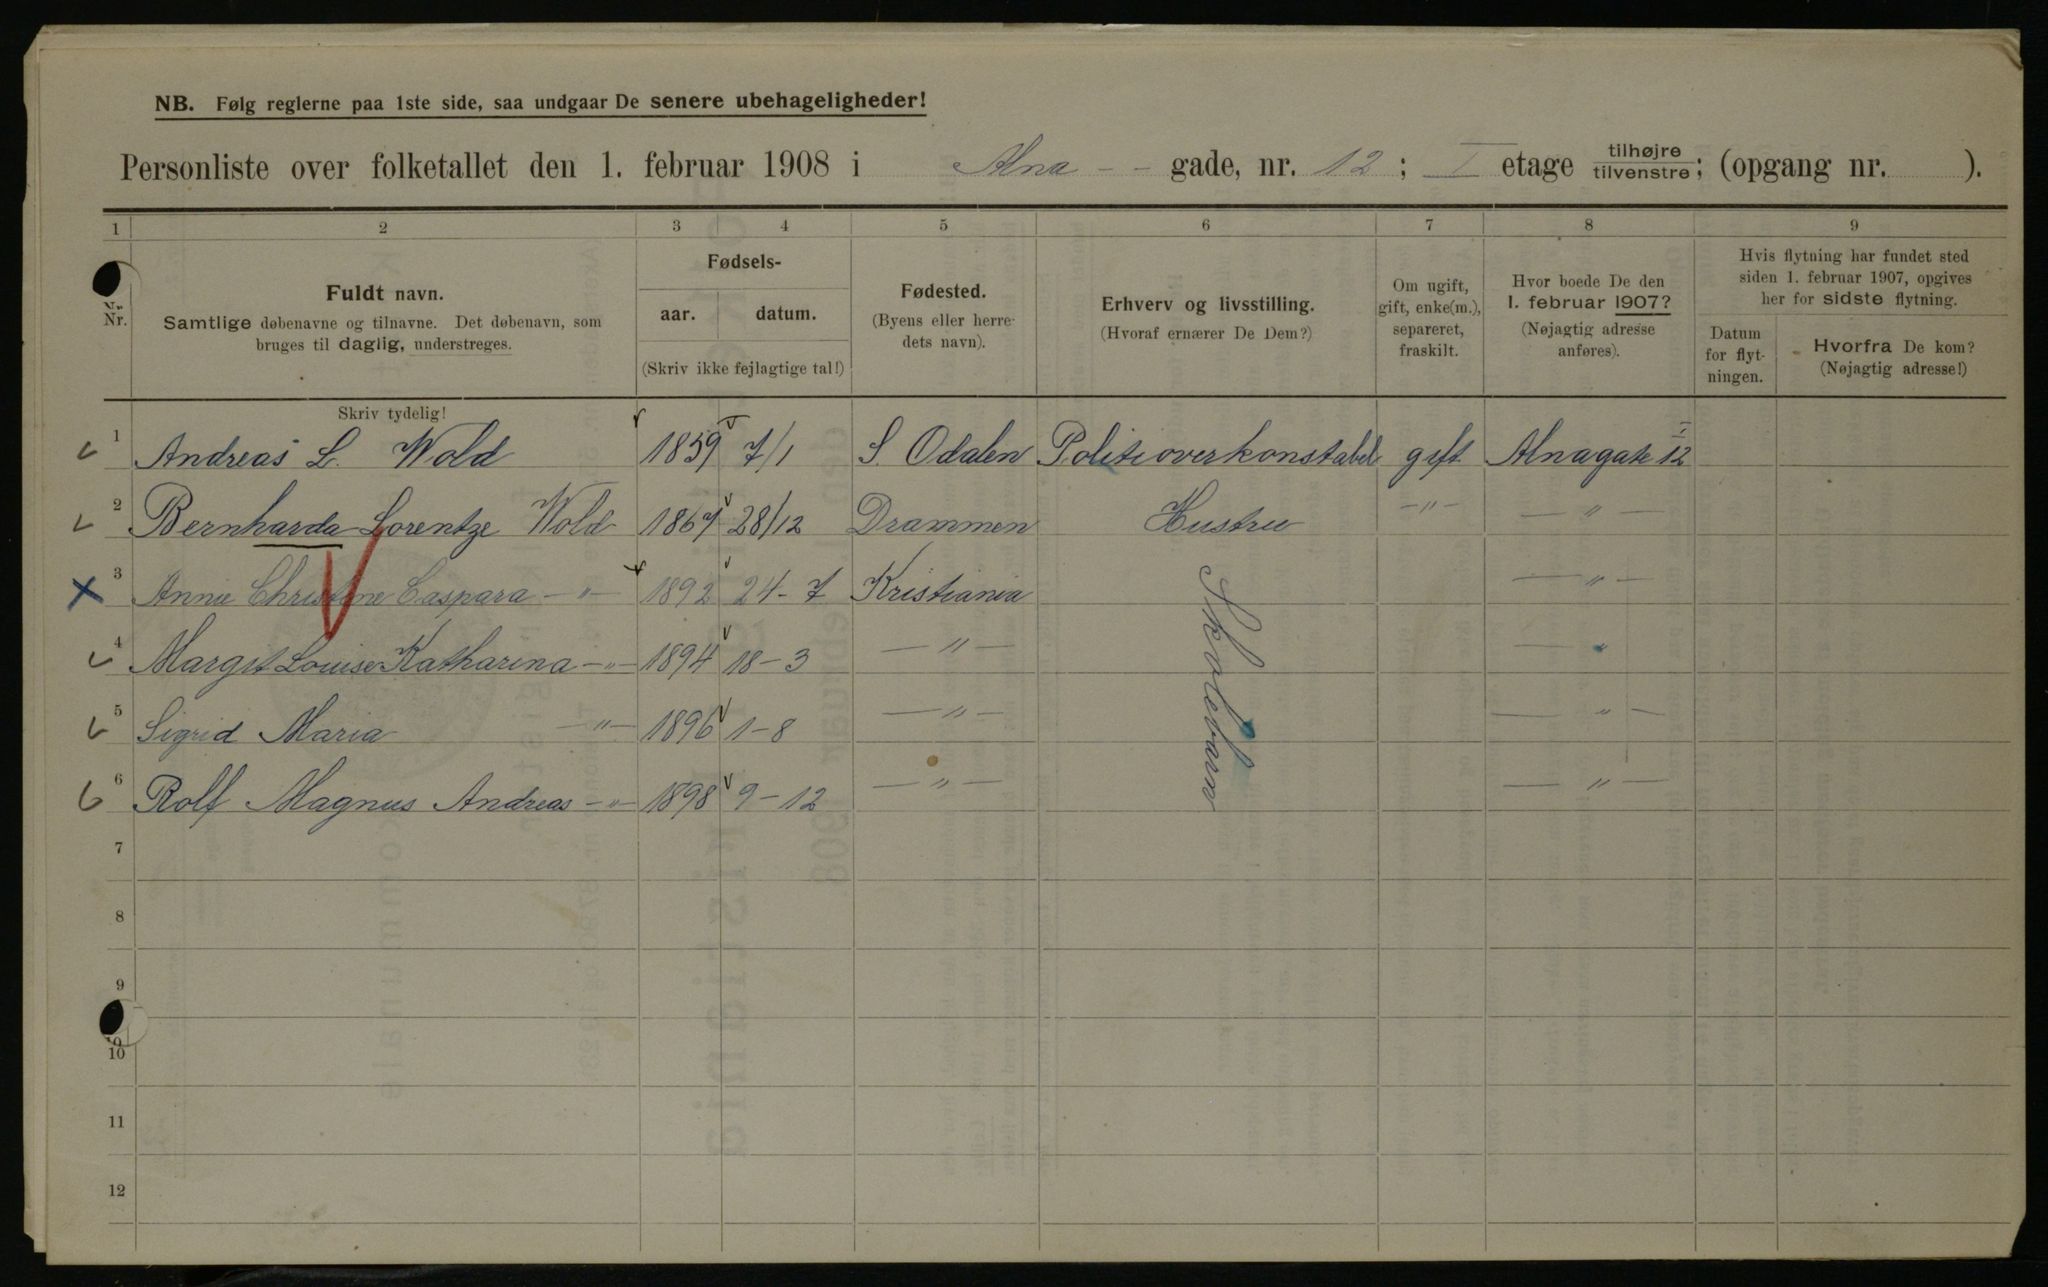 NB. Følg reglerne paa 1ste side, saa undgaar De senere ubehageligheder!
Personliste over folketallet den 1. februar 1908 i Alna - - gade, nr. 12; I etage tilhøjre tilvenstre; (opgang nr. ).
1 2 3 4 5 6 7 8 9
Nr.
Fuldt navn.
Samtlige døbenavne og tilnavne. Det døbenavn, som
bruges til daglig, understreges.
Skriv tydelig!
Fødsels-
aar. datum.
(Skriv ikke fejlagtige tal!)
Fødested.
(Byens eller herre-
dets navn).
Erhverv og livsstilling.
(Hvoraf ernærer De Dem?)
Om ugift,
gift, enke(m.),
separeret,
fraskilt.
Hvor boede De den
1. februar 1907?
(Nøjagtig adresse
anføres).
Hvis flytning har fundet sted
siden 1. februar 1907, opgives
her for sidste flytning.
Datum
for flyt-
ningen.
Hvorfra De kom?
(Nøjagtig adresse!)
1 Andreas L. Wold 1859 7/1 S. Odalen Politioverkonstabel gift Alnagate 12 I
2 Bernharda Lorentze Wold 1867 28/12 Drammen Hustru -"- - " -
3 Anna Christine Caspara - " - 1892 24-7 Kristiania - " -
4 Margit Louise Katharina - " - 1894 18-3 - " - - " -
5 Sigrid Maria - " - 1896 1-8 - " - - " -
6 Rolf Magnus Andreas - " - 1898 9-12 - " - - " -
Skolebarn
7
8
9
10
11
12